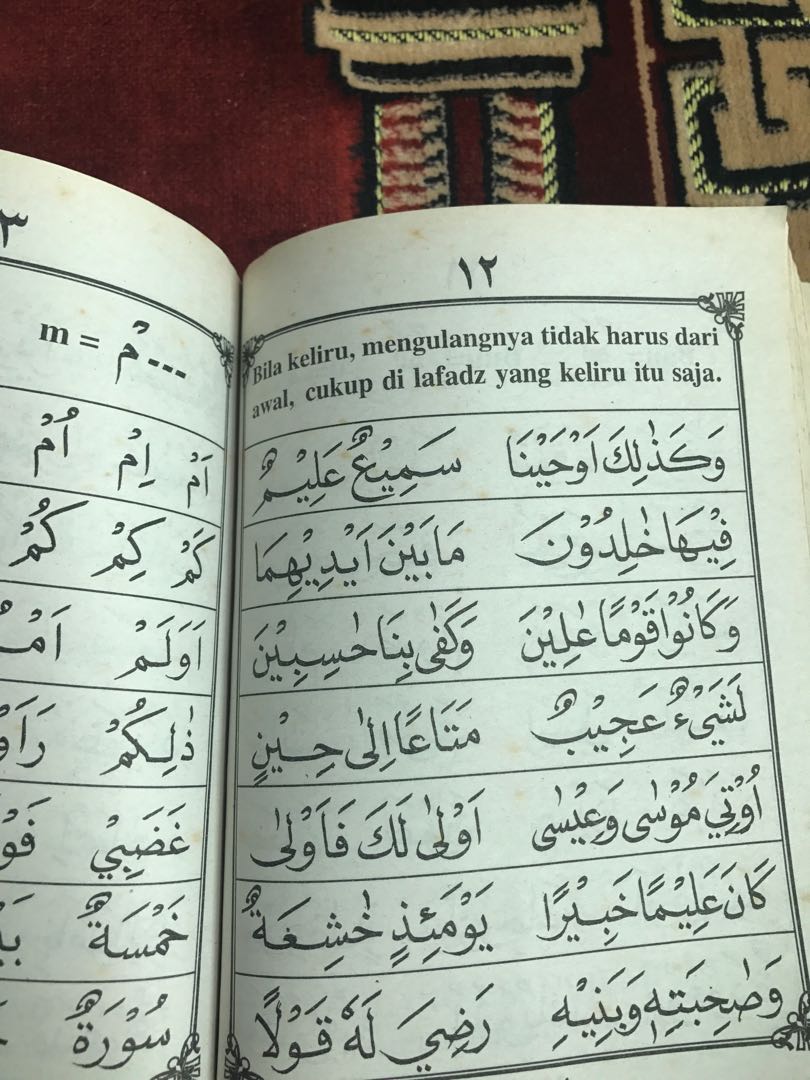 ١٢
Bila keliru, mengulangnya tidak harus dari
awal, cukup di lafadz yang keliru itu saja.
وَكَذٰلِكَ اَوْحَيْنَا سَمِيْعٌ عَلِيْمٌ
فِيْهَا خٰلِدُوْنَ مَا بَيْنَ اَيْدِيْهِمَا
وَكَانُوْا قَوْمًا عٰلِيْنَ وَكَفٰى بِنَا حٰسِبِيْنَ
لَشَيْءٌ عَجِيْبٌ مَتَاعًا اِلٰى حِيْنٍ
اُوْتِيَ مُوْسٰى وَعِيْسٰى اَوْلٰى لَكَ فَاَوْلٰى
كَانَ عَلِيْمًا خَبِيْرًا يَوْمَئِذٍ خٰشِعَةٌ
وَصٰحِبَتِهٖ وَبَنِيْهِ رَضِيَ لَهٗ قَوْلًا
٣
m = مْ...
اَمْ اِمْ اُمْ
كَمْ كِمْ كُمْ
اَوَلَمْ
ذٰلِكُمْ
غَضَبِيْ
خَمْسَةٌ
سُوْرَةٌ